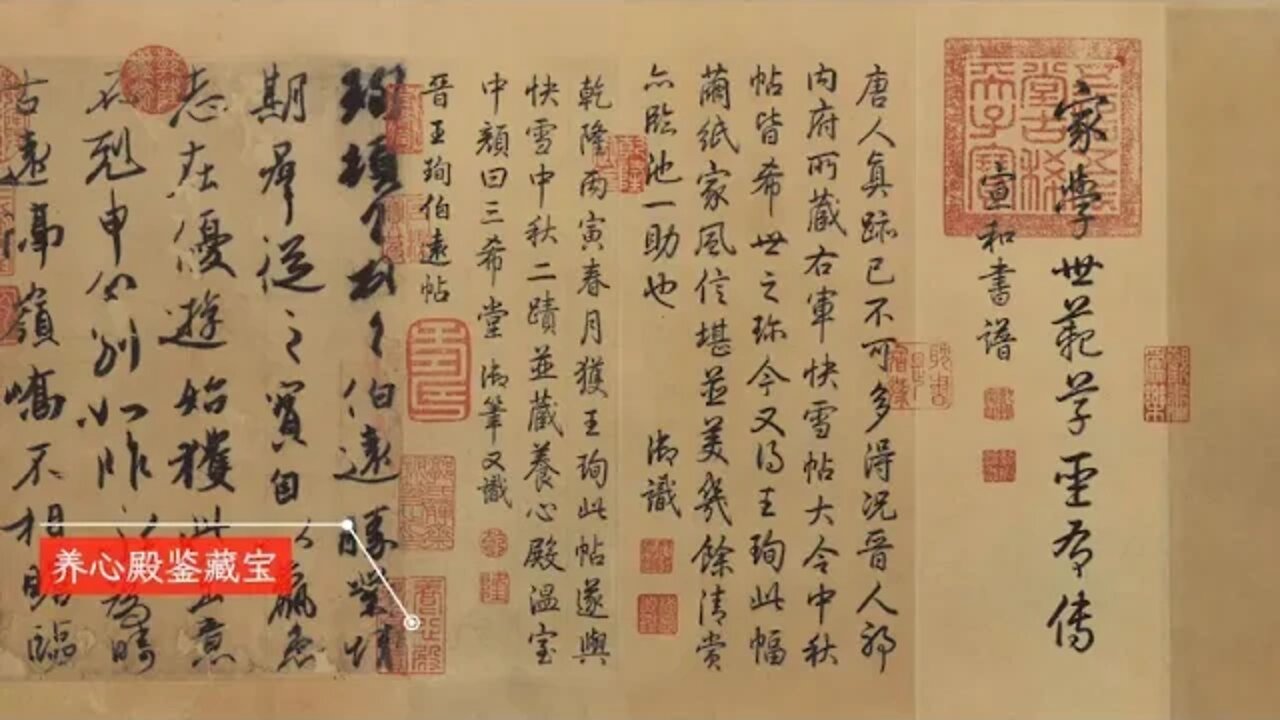 五福五代堂古稀天子寶
家學世範草聖有傳
宣和書譜
唐人真跡已不可多得況晉人耶
內府所藏右軍快雪帖大令中秋
帖皆希世之珍今又得王珣此幅
繭紙家風信堪並美幾餘清賞
亦臨池一助也 御識
乾隆丙寅春月獲王珣此帖遂與
快雪中秋二蹟並藏養心殿溫室
中顏曰三希堂 御筆又識
晉王珣伯遠帖
珣頓首首伯遠勝業情
期群從之寶自以羸患
志在優遊始獲此意
不剋申分別如昨永為疇
古遠隔嶺嶠不相瞻臨
养心殿鉴藏宝